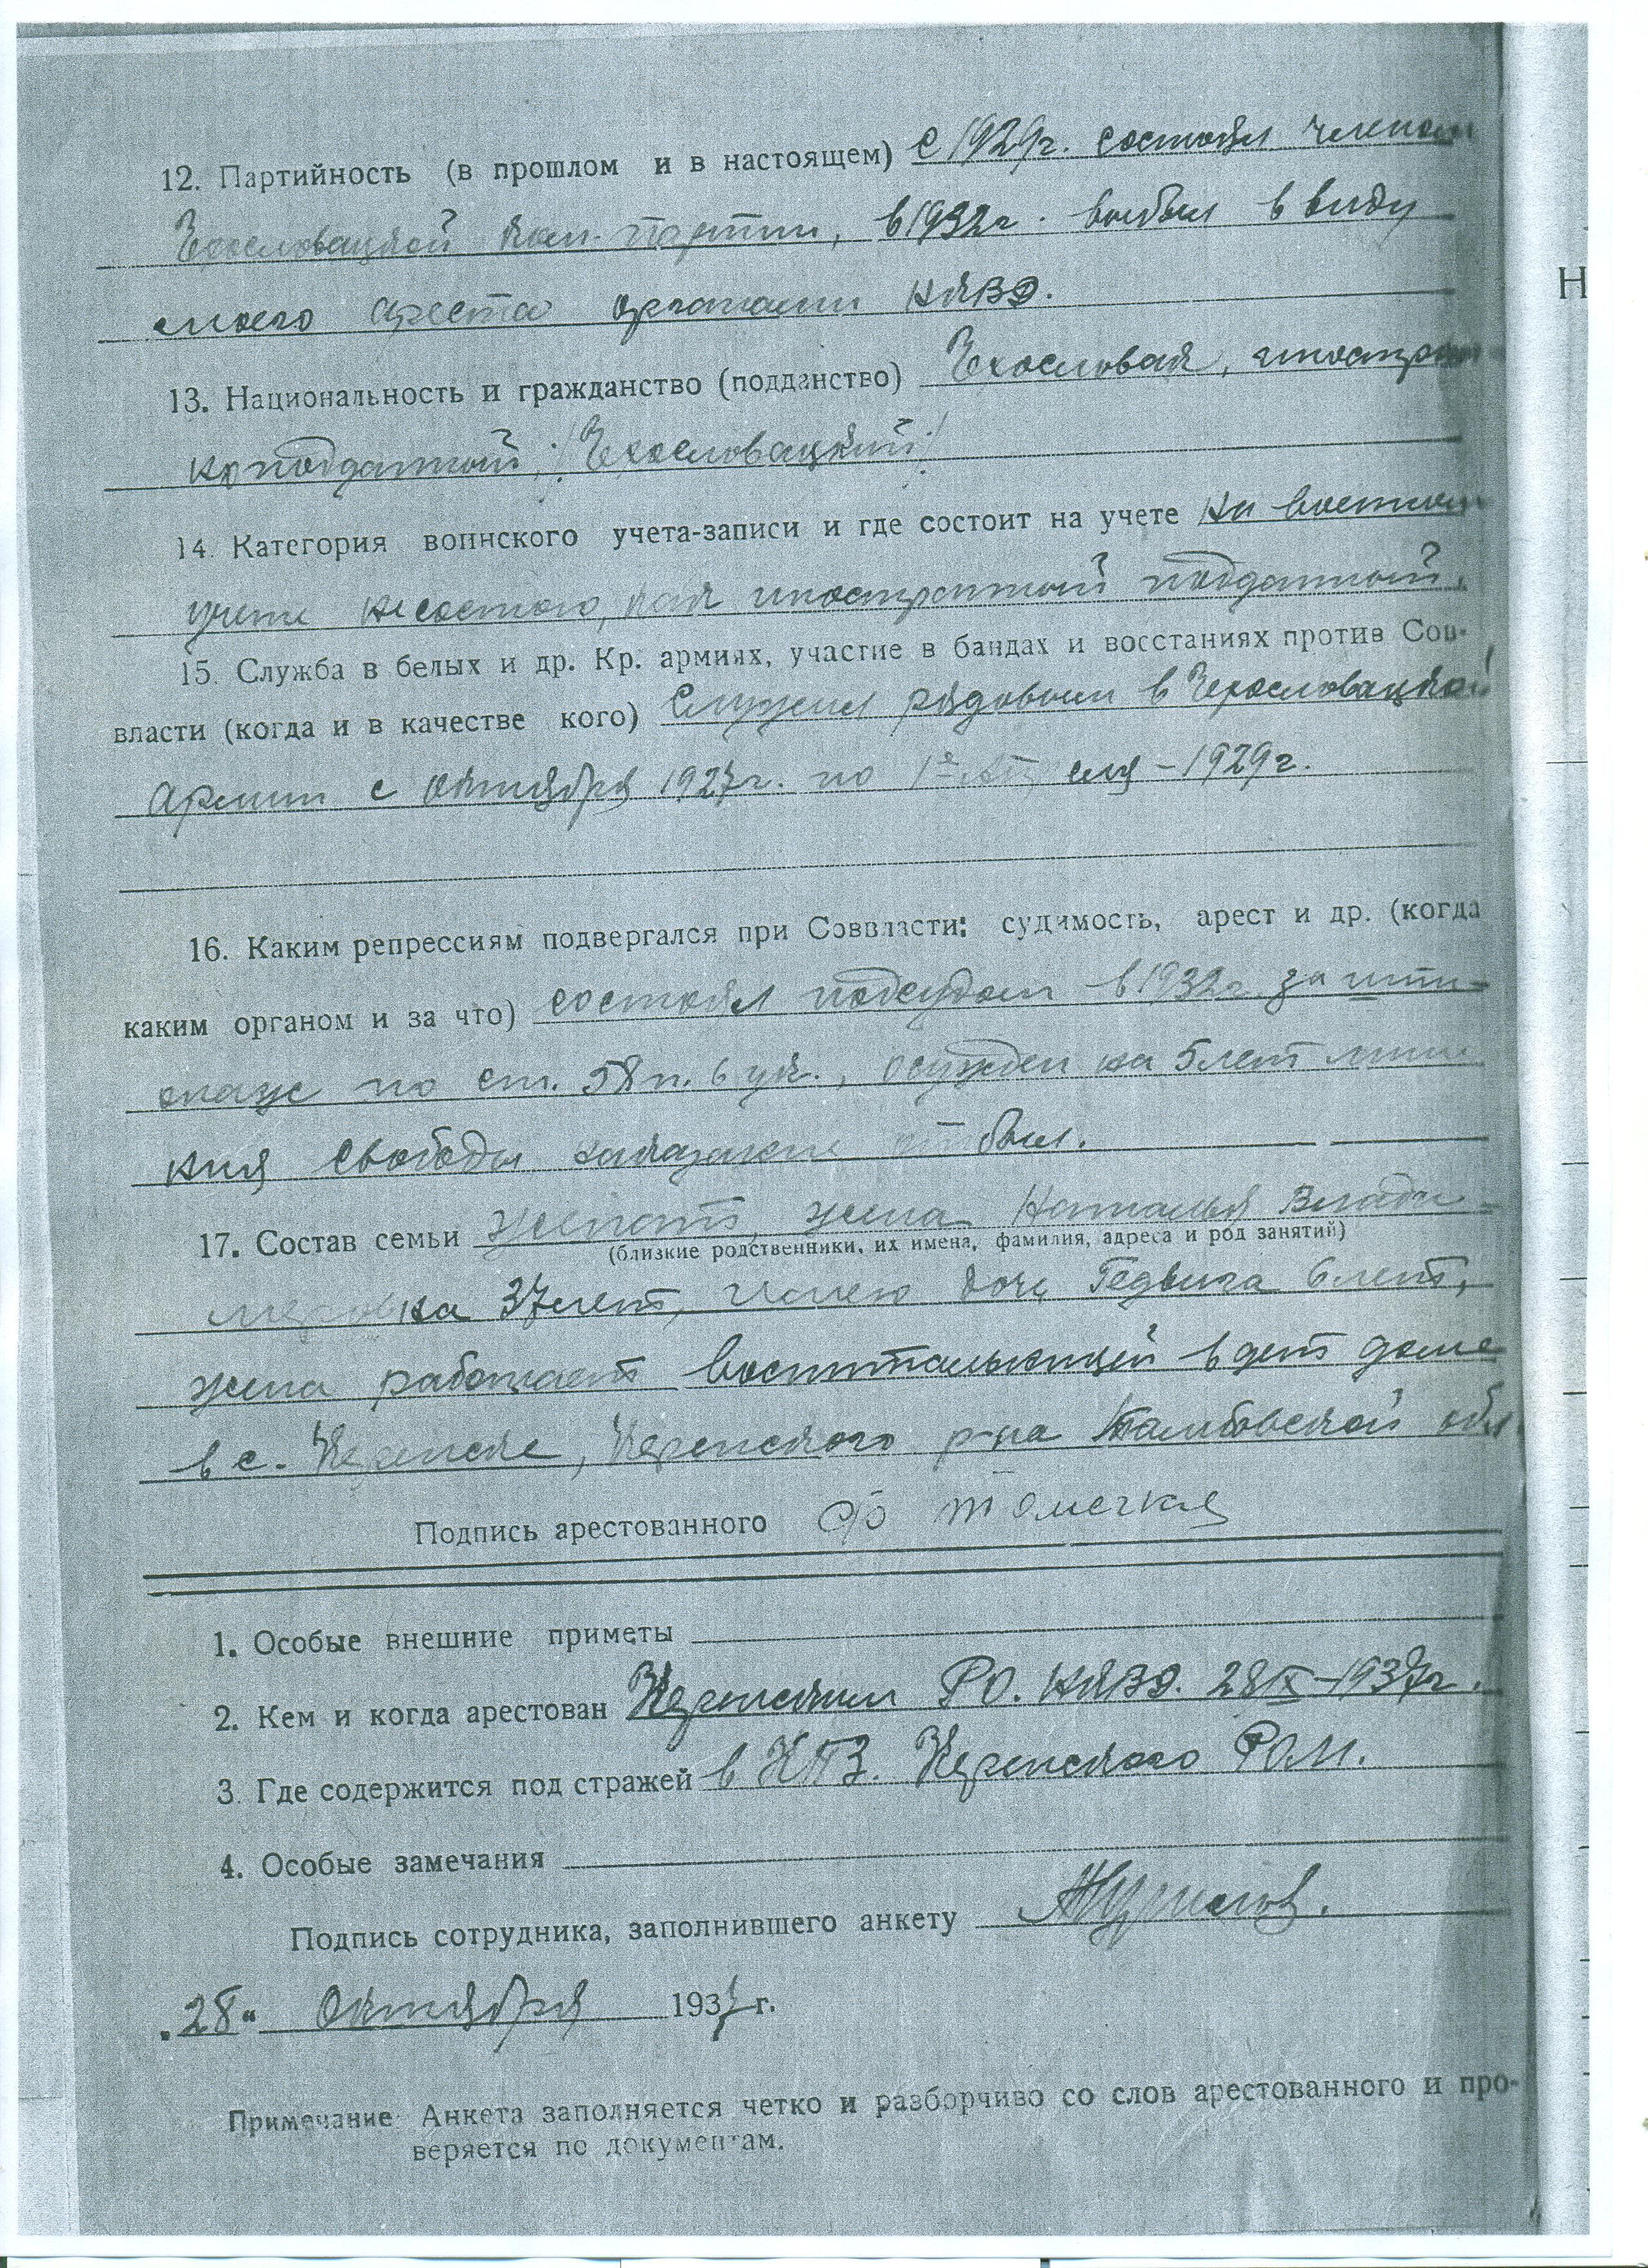 12. Партийность (в прошлом и в настоящем) с 1929г. состоял членом
Чехословацкой ком. партии, в 1932г. выбыл в виду
моего ареста органами НКВД.
Н
13. Национальность и гражданство (подданство) Чехословак, иностран
ноподданный, /Чехословацкий/
14. Категория воинского учета-записи и где состоит на учете на воен
учете не состою, как иностранный подданный.
15. Служба в белых и др. Кр. армиях, участие в бандах и восстаниях против Сов-
власти (когда и в качестве кого) Служил рядовым в Чехословацкой
Армии с октября 1927г. по 1е еля - 1929г.
16. Каким репрессиям подвергался при Соввласти: судимость, арест и др. (когда
каким органом и за что) состоял подсудом в 1932г. за шпи-
онаж по ст. 58 п. 6 ук., осужден на 5 лет лише
ния свободы наказание отбыл.
17. Состав семьи женат, жена Наталья Влади-
(близкие родственники, их имена, фамилия, адреса и род занятий)
на 37 лет, имею дочь Гедвига 6 лет,
жена работает воспитальницей в дет доме
в с. Керенске, Керенского р-на Тамбовской обл.
Подпись арестованного Томечка
1. Особые внешние приметы
2. Кем и когда арестован Керенским РО. НКВД. 28/X-1937г.
3. Где содержится под стражей в КПЗ. Керенского РОМ.
4. Особые замечания
Подпись сотрудника, заполнившего анкету
„28" Октября 1937 г.
Примечание: Анкета заполняется четко и разборчиво со слов арестованного и про-
веряется по документам.